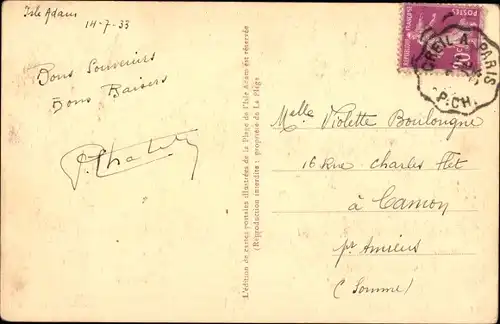 Isle Adam
14-7-33
Bons Souvenirs
Bons Baisers
L'édition de cartes postales illustrées de la Plage de l'Isle Adam est réservée
(Reproduction interdite : propriété de La Plage)
POSTES
REPUBLIQUE FRANÇAISE
20c
CREIL A PARIS
P.CH.
Melle Violette Boulongne
16 Rue Charles
à Camon
pr Amiens
(Somme)